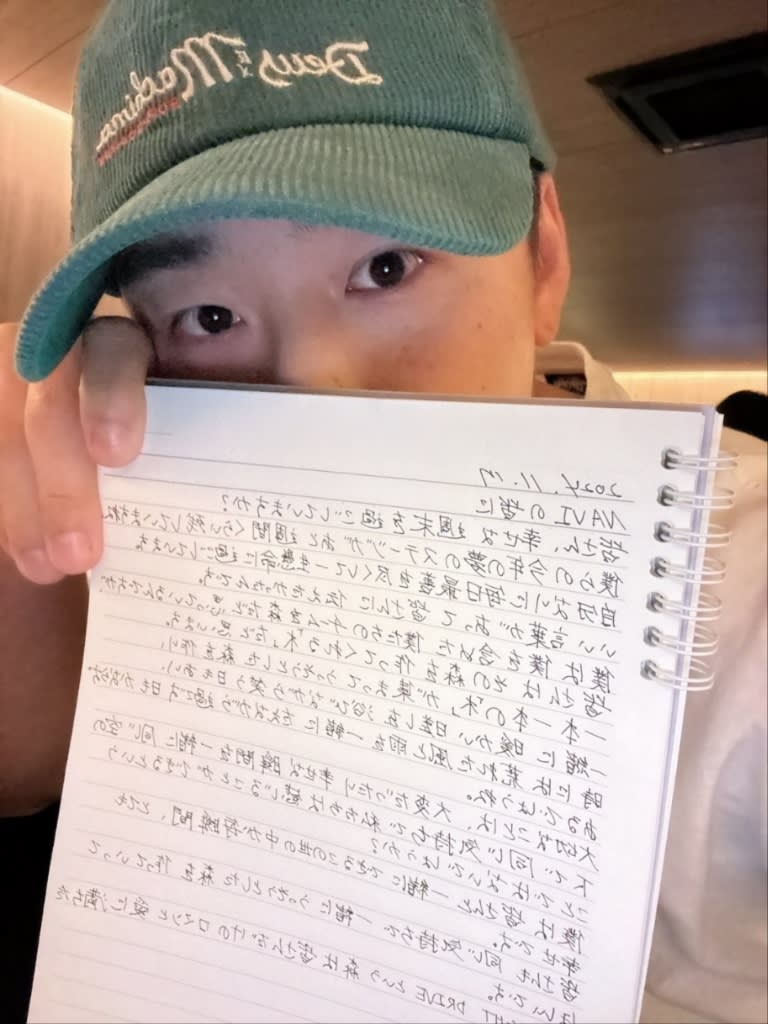 Deus Ex Machina
2024.11.17
NAVIの皆に
皆さん、幸せな週末を過ごしていますか?
僕らの今年の夢のステージがあと1週間くらい残していますね。
自分なりに毎日最善を尽くして一生懸命に過ごしています。
いい言葉があって皆さんに伝えたかったんです。
僕は僕を含めた僕たちのチームを森だと思っているんですが、
皆さんはその森を作ってくれる「木」だと思います。
一本一本の「木」が集まってうっそうとした森を作り、
一緒に暖かい日差しを浴びながら笑う日もあり、
時には荒れた風と雨を一緒にたえながら過ごす日も
あるでしょうね。
大切なことは、大変だったり幸せな瞬間を一緒に同じ空の
下で同じ気持ちで私たちは感じることができるという
ことではないでしょうか?
僕は皆さんと一緒にできるこの世の中が毎瞬間、とても
幸せです。
皆さんも同じ気持ちで一緒にうっそうとした森を作っていって
ほしいです。
DRIVEという森は皆さんだけのロマンと愛に満ちた